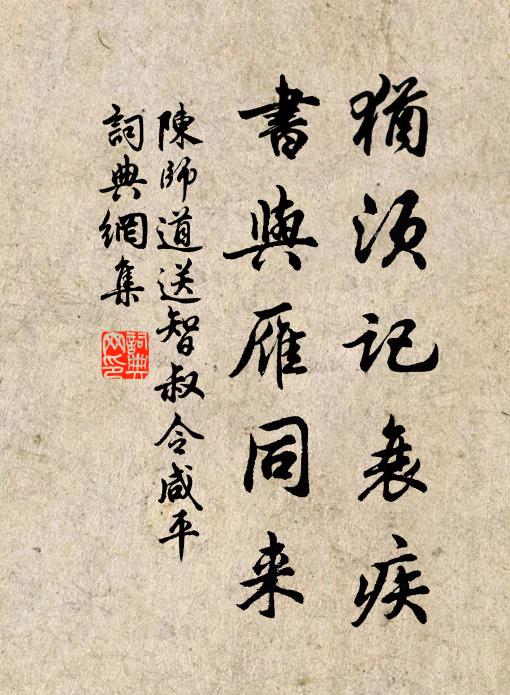 猶須記衰疾
書與雁同来
陳師道送智叔令咸平
詞典網集
詞典
网印